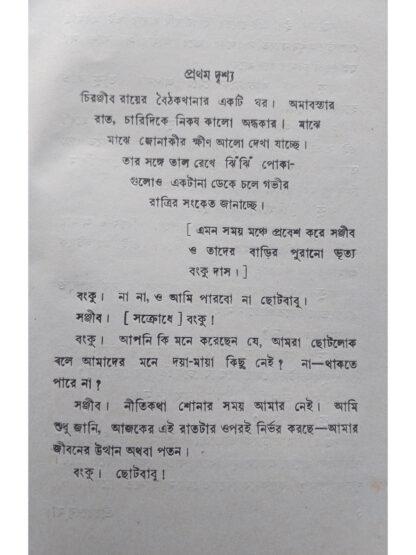 প্রথম দৃশ্য
চিরঞ্জীব রায়ের বৈঠকখানার একটি ঘর। অমাবস্যার
রাত, চারিদিকে নিকষ কালো অন্ধকার। মাঝে
মাঝে জোনাকীর ক্ষীণ আলো দেখা যাচ্ছে।
তার সঙ্গে তাল রেখে ঝিঁঝিঁ পোকা-
গুলোও একটানা ডেকে চলে গভীর
রাত্রির সংকেত জানাচ্ছে।
[ এমন সময় মঞ্চে প্রবেশ করে সঞ্জীব
ও তাদের বাড়ির পুরানো ভৃত্য
বংকু দাস। ]
বংকু। না না, ও আমি পারবো না ছোটবাবু।
সঞ্জীব। [ সক্রোধে ] বংকু!
বংকু। আপনি কি মনে করেছেন যে, আমরা ছোটলোক
বলে আমাদের মনে দয়া-মায়া কিছু নেই? না—থাকতে
পারে না?
সঞ্জীব। নীতিকথা শোনার সময় আমার নেই। আমি
শুধু জানি, আজকের এই রাতটার ওপরই নির্ভর করছে—আমার
জীবনের উত্থান অথবা পতন।
বংকু। ছোটবাবু!